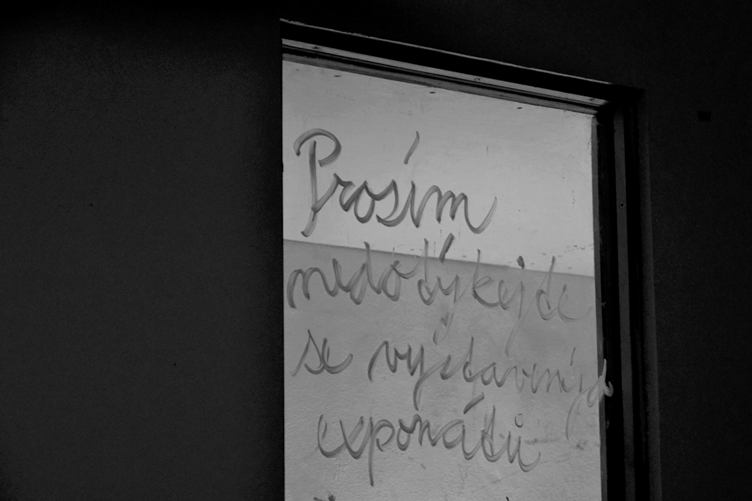 Prosím
nedotýkejte
se vystavených
exponátů